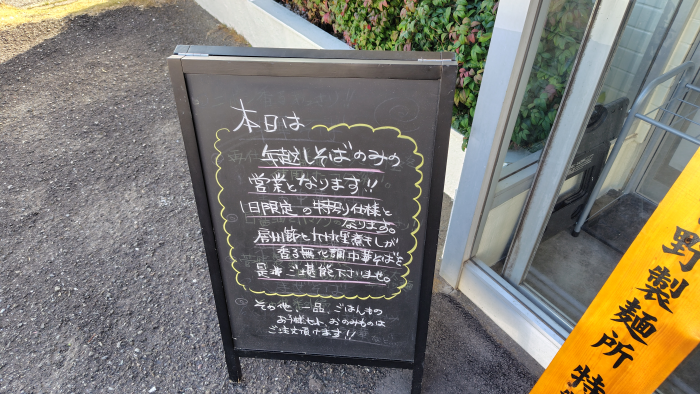 本日は
年越しそばのみの
営業となります!!
1日限定の特別仕様と
なります。
房州節と九十九里煮干しが
香る無化調中華そばを
是非ご堪能下さいませ。
その他、一品、ごはんもの
お得セット、おのみものは
ご注文頂けます!!
野製麺所 特